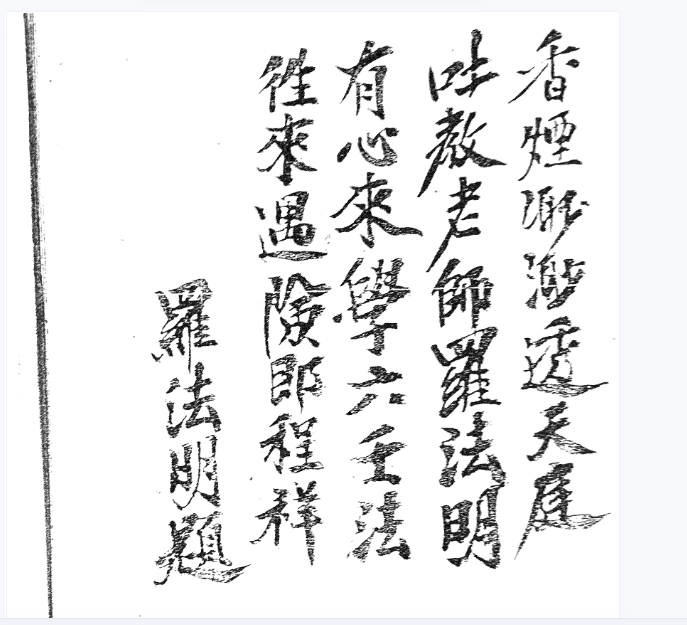 香煙渺渺透天庭
教老師羅法明
有心來學六壬法
徃來遇險即程祥
羅法明題